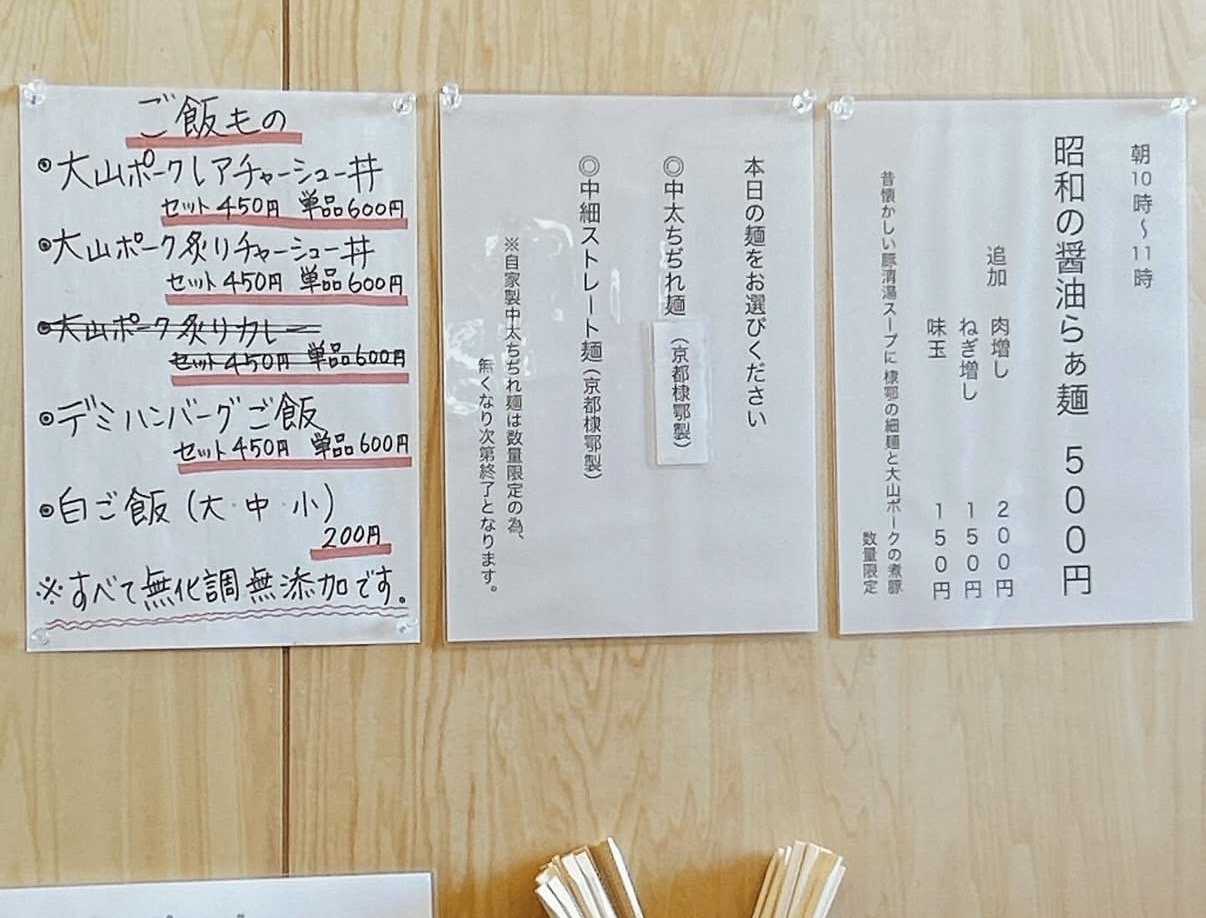 ご飯もの
◉大山ポークレアチャーシュー丼
セット450円 単品600円
◉大山ポーク炙りチャーシュー丼
セット450円 単品600円
◉大山ポーク炙りカレー
セット450円 単品600円
◉デミハンバーグご飯
セット450円 単品600円
◉白ご飯(大・中・小)
200円
※すべて無化調無添加です。
本日の麺をお選びください
◎中太ちぢれ麺(京都棣鄂製)
◎中細ストレート麺(京都棣鄂製)
※自家製中太ちぢれ麺は数量限定の為、
無くなり次第終了となります。
朝10時~11時
昭和の醤油らぁ麺 500円
追加 肉増し 200円
ねぎ増し 150円
味玉 150円
昔懐かしい豚清湯スープに棣鄂の細麺と大山ポークの煮豚
数量限定